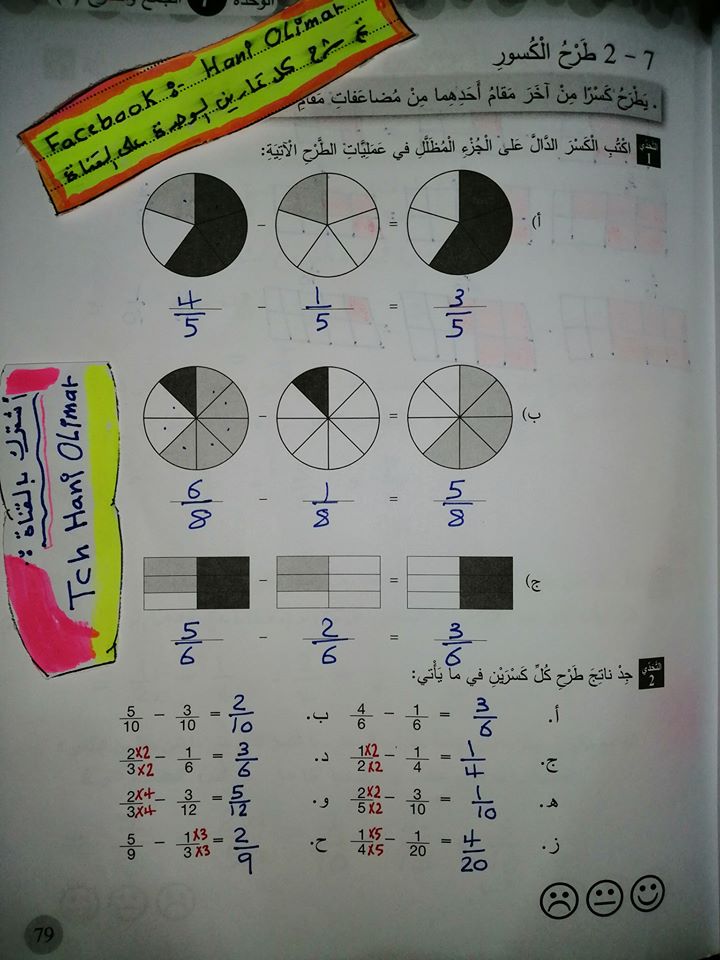 الوحدة 7
Facebook :- Hani Olimar
تم شرح كل تمارين الوحدة على القناة
7 – 2 طَرْحُ الْكُسورِ
. يَطْرَحُ كَسْرًا مِنْ آخَرَ مَقامُ أَحَدِهِما مِنْ مُضاعَفاتِ مَقامِ
التَّحَدّي 1 اكْتُبِ الْكَسْرَ الدّالَّ عَلى الْجُزْءِ الْمُظَلَّلِ في عَمَلِيّاتِ الطَّرْحِ الْآتِيَةِ:
أ) – =
4/5 – 1/5 = 3/5
ب) – =
6/8 – 1/8 = 5/8
ج) – =
5/6 – 2/6 = 3/6
اشترك بالقناة :
Tch Hani Olimar
التَّحَدّي 2 جِدْ ناتِجَ طَرْحِ كُلِّ كَسْرَيْنِ في ما يَأْتي:
أ. 4/6 – 1/6 = 3/6 ب. 5/10 – 3/10 = 2/10
ج. 1×2/2×2 – 1/4 = 1/4 د. 2×2/3×2 – 1/6 = 3/6
هـ. 2×2/5×2 – 3/10 = 1/10 و. 2×4/3×4 – 3/12 = 5/12
ز. 1×5/4×5 – 1/20 = 4/20 ح. 5/9 – 1×3/3×3 = 2/9
79